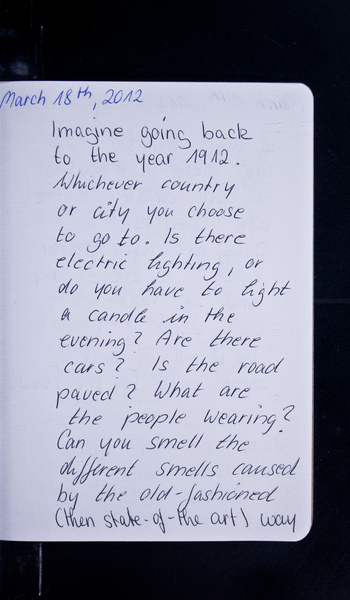 March 18th, 2012
Imagine going back
to the year 1912.
Whichever country
or city you choose
to go to. Is there
electric lighting, or
do you have to light
a candle in the
evening? Are there
cars? Is the road
paved? What are
the people wearing?
Can you smell the
different smells caused
by the old-fashioned
(then state-of-the art) way